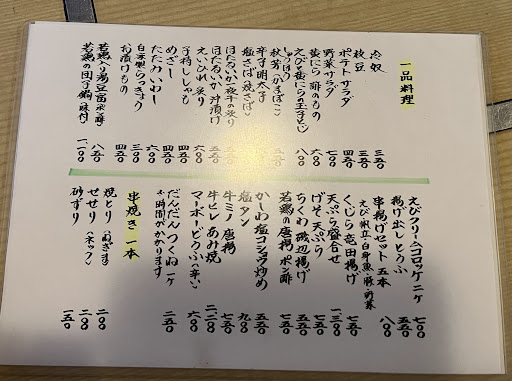 一品料理
冷奴 三五〇
枝豆 三五〇
ポテトサラダ 四五〇
野菜サラダ 六〇〇
黄にら 酢のもの 七〇〇
えびと黄にらの玉子とじ 八〇〇
しっぽう
秋芳(かまぼこ)
辛子明太子
塩さば(焼さば)
ほたるいか一夜干の炙り
ほたるいか 沖漬け
えいひれ炙り 六〇〇
子持ししゃも 四五〇
めざし 四五〇
たたみいわし 六〇〇
自家製らっきょう 三〇〇
お漬けもの 四五〇
若鶏入り湯豆富 八五〇
若鶏の団子鍋(味付) 一、一〇〇
えびクリームコロッケ二ケ 七〇〇
揚げ出しとうふ 五五〇
串揚げセット 五本 八〇〇
えび・帆立・白身魚・豚・野菜
くじら竜田揚げ 七五〇
天ぷら盛合せ 一、三〇〇
げそ天ぷら 五五〇
ちくわ磯辺揚げ 五五〇
若鶏の唐揚ポン酢 七五〇
かしわ塩コショウ炒め 五五〇
塩タン 九〇〇
牛ミノ唐揚 七五〇
牛ヒレあみ焼
マーボーどうふ(辛い) 六〇〇
だんだんつくね一ケ 二五〇
※時間がかかります
串焼き 一本
焼とり(ねぎま) 二〇〇
せせり(ネック) 二〇〇
砂ずり 一五〇